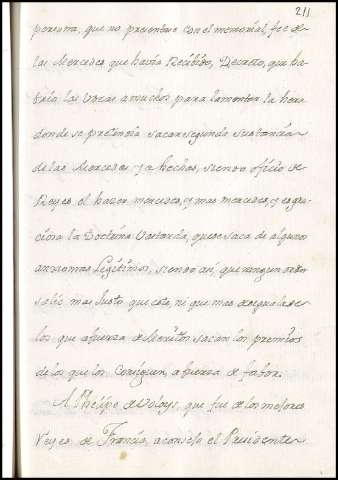 211
persona, que no presentare con el memorial, fee de
las Mercedes que havia Recibido, Decreto, que ha-
bria las vocas a muchos para lamentar la hora
donde se pretendia sacar segunda sustancia
de las Mercedes ya hechas, siendo oficio de
Reyes el hazer mercedes, y mas mercedes, y
la Doctrina que se saca de algunos
Legitimos, siendo asi que ningun
salio mas Justo que este, ni que mas
los que a fuerza de Meritos sacan los premios
de los que los Consiguen, a fuerza de fabor.
A Phelipe de Valoys, que fue de los mejores
Reyes de Francia, aconsejo el Presidente